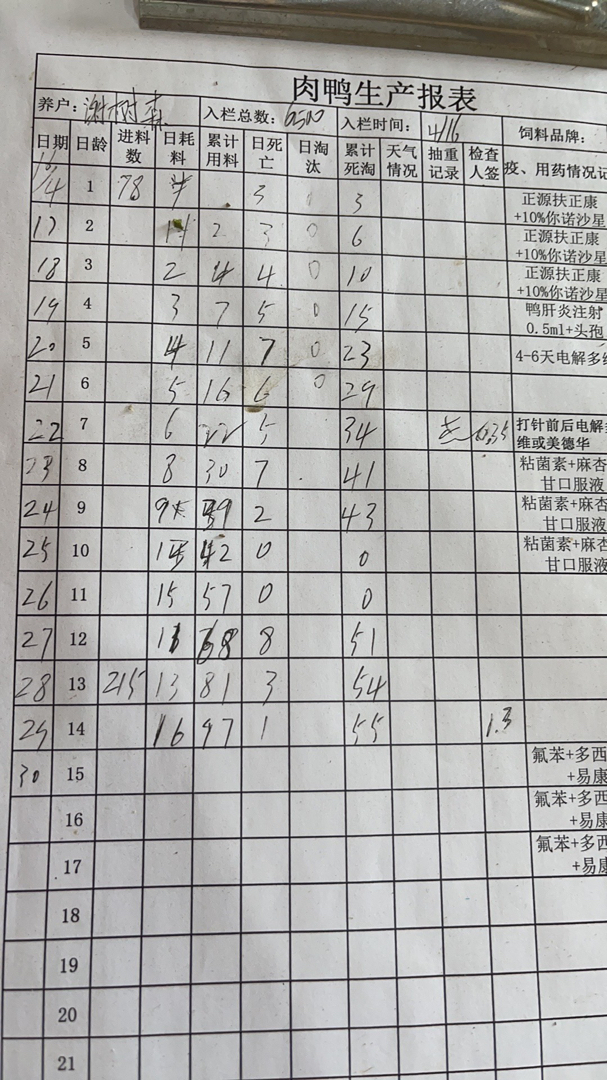 肉鸭生产报表
养户：谢树森 入栏总数：6500 入栏时间：4/16 饲料品牌：
日期 日龄 进料数 日耗料 累计用料 日死亡 日淘汰 累计死淘 天气情况 抽重记录 检查人签 疫、用药情况记
16/4 1 78 3 0 3 正源扶正康+10%你诺沙星
17 2 2 3 0 6 正源扶正康+10%你诺沙星
18 3 2 4 4 0 10 正源扶正康+10%你诺沙星
19 4 3 7 5 0 15 鸭肝炎注射0.5ml+头孢
20 5 4 11 7 0 23 4-6天电解多维
21 6 5 16 6 0 29
22 7 6 22 5 34 打针前后电解多维或美德华
23 8 8 30 7 41 粘菌素+麻杏甘口服液
24 9 9 39 2 43 粘菌素+麻杏甘口服液
25 10 42 0 0 粘菌素+麻杏甘口服液
26 11 15 57 0 0
27 12 11 68 8 51
28 13 215 13 81 3 54
29 14 16 97 1 55 1.3
30 15 氟苯+多西+易康
16 氟苯+多西+易康
17 氟苯+多西+易康
18
19
20
21